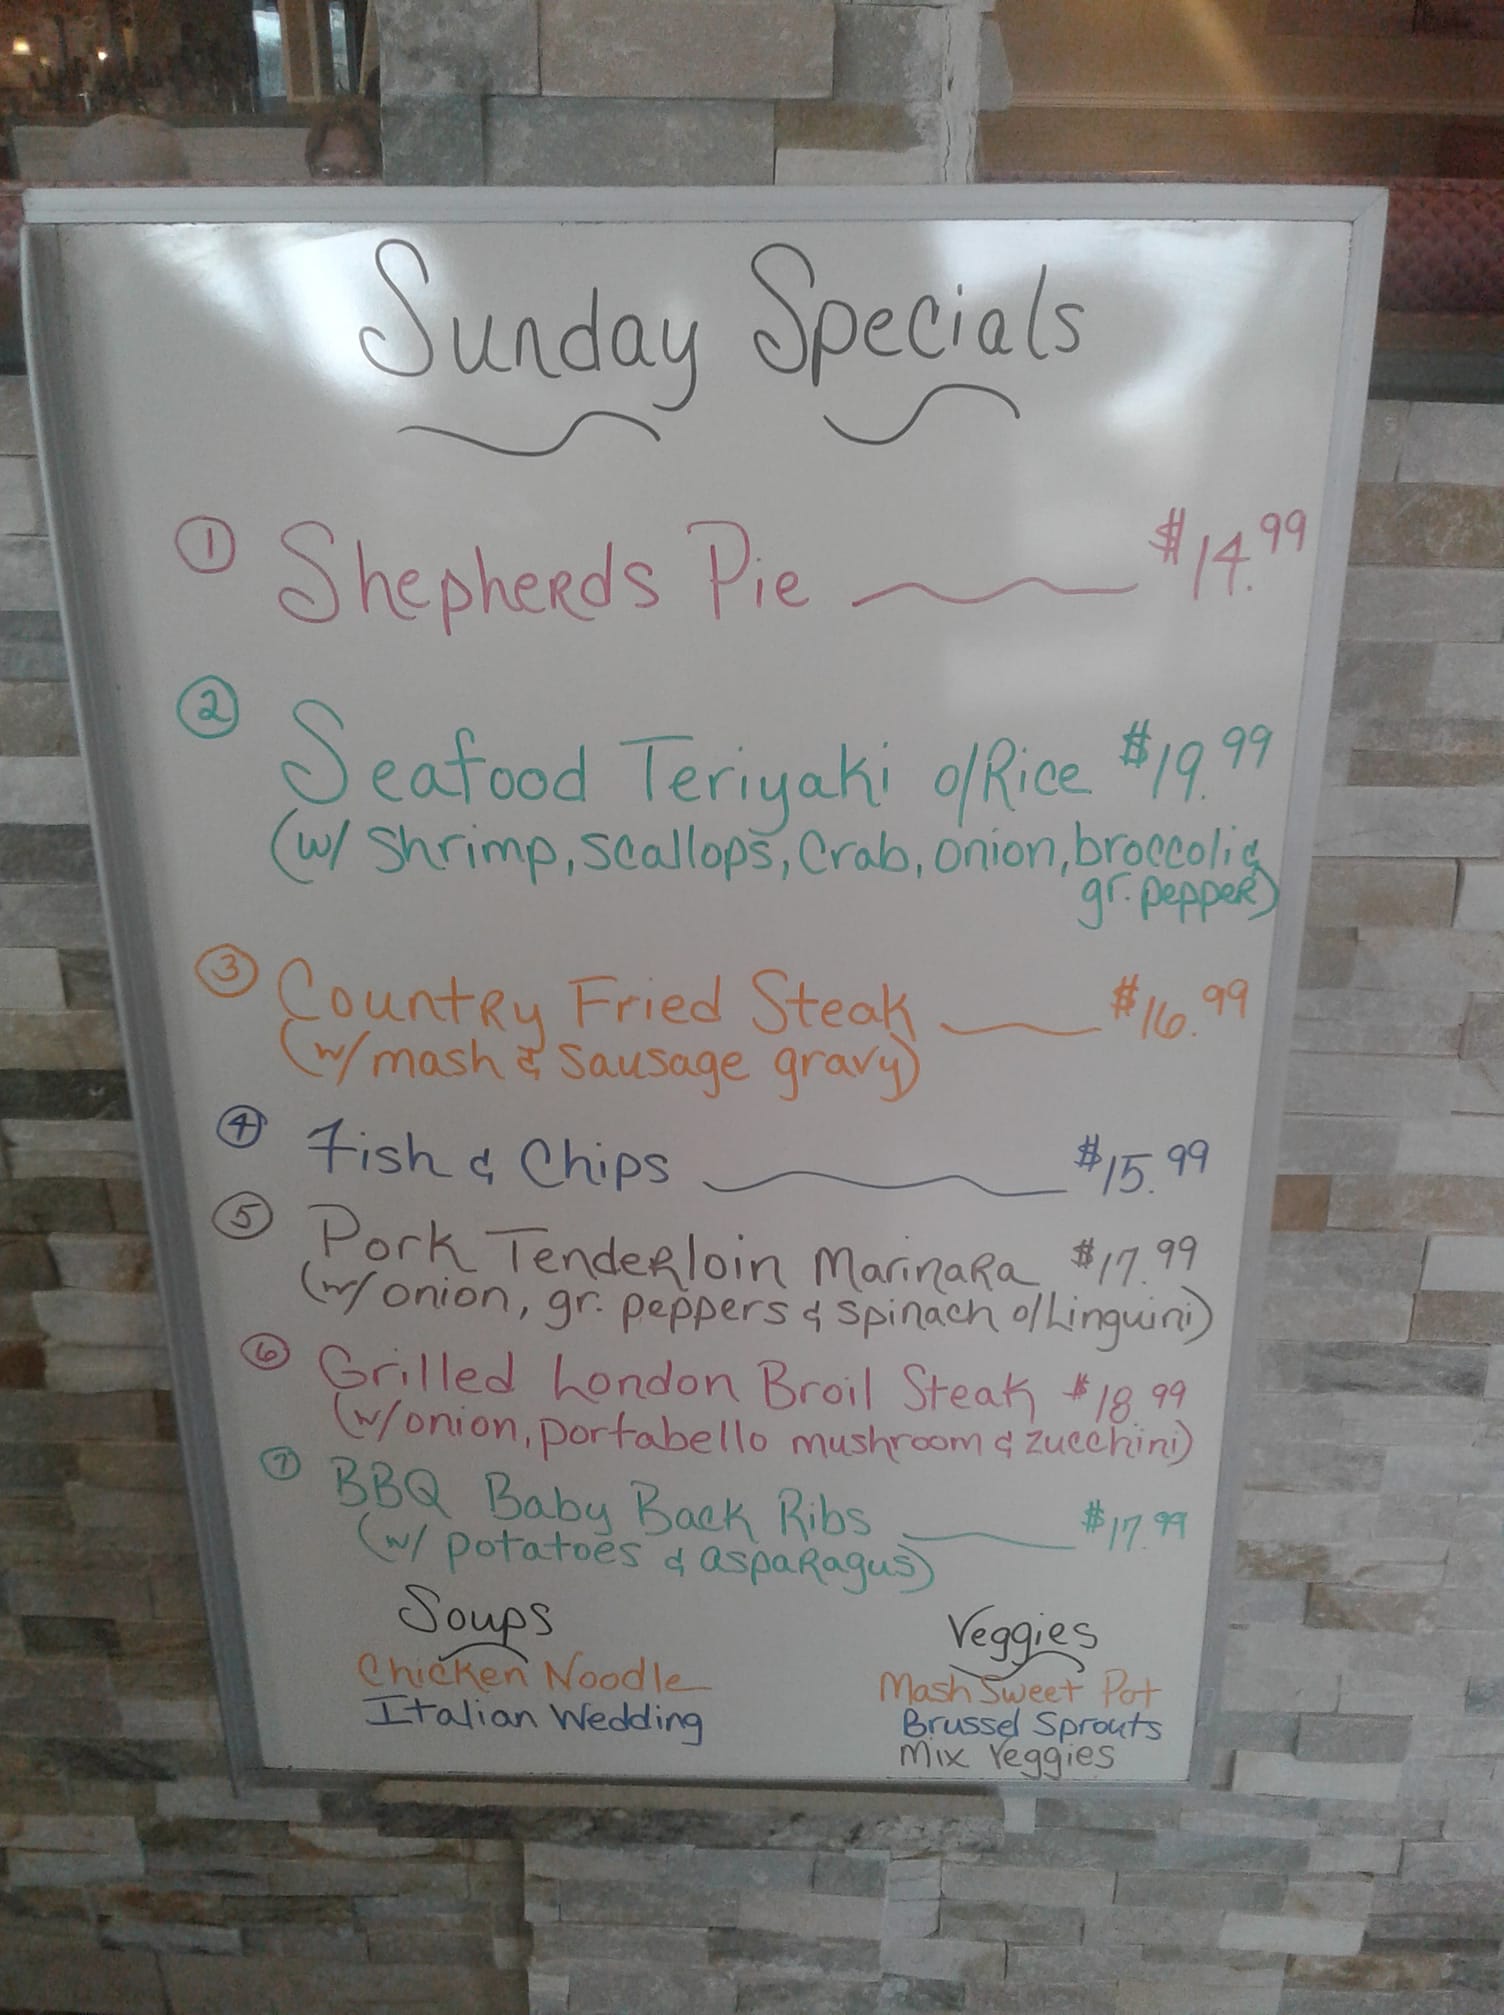 Sunday Specials
① Shepherds Pie $14.99
② Seafood Teriyaki o/Rice $19.99
(w/ Shrimp, scallops, Crab, onion, broccoli &
gr. pepper)
③ Country Fried Steak $16.99
(w/ mash & sausage gravy)
④ Fish & Chips $15.99
⑤ Pork Tenderloin Marinara $17.99
(w/ onion, gr. peppers & spinach o/Linguini)
⑥ Grilled London Broil Steak $18.99
(w/ onion, portabello mushroom & zucchini)
⑦ BBQ Baby Back Ribs $17.99
(w/ potatoes & asparagus)
Soups
Chicken Noodle
Italian Wedding
Veggies
Mash Sweet Pot
Brussel Sprouts
Mix Veggies